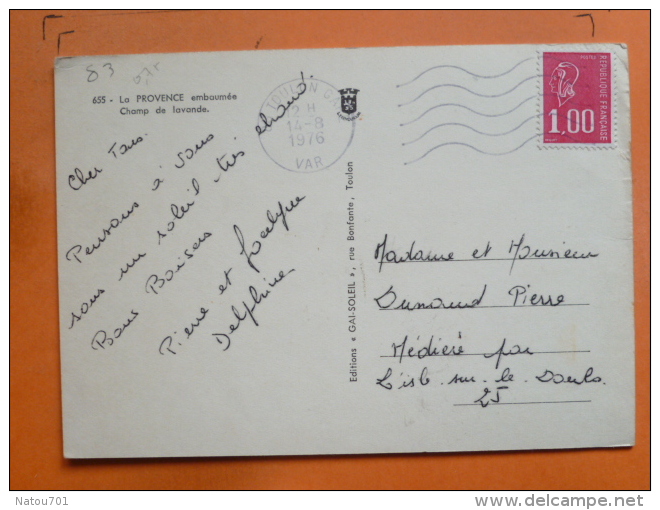 83 0,75
655 - La PROVENCE embaumée
Champ de lavande.
Cher Tous.
Pensons à vous
sous un soleil très chaud.
Bons Baisers
Pierre et Jocelyne
Delphine
TOULON
12 H
14-8
1976
VAR
Editions « GAI-SOLEIL », rue Bonfante, Toulon
POSTES
REPUBLIQUE FRANÇAISE
1,00
Madame et Monsieur
Dunand Pierre
Médière par
L'isle. sur. le. Doubs.
25
Natou701